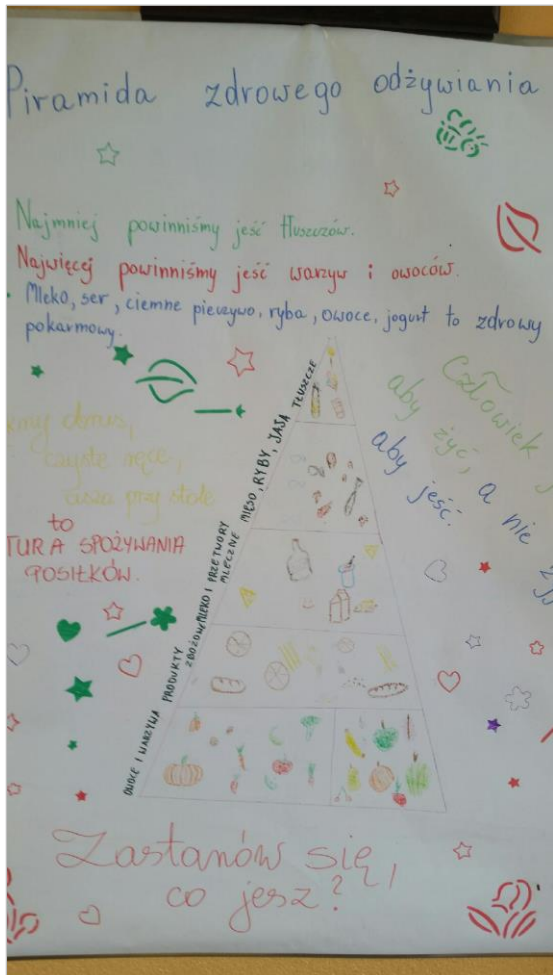 Piramida zdrowego odżywiania
Najmniej powinniśmy jeść tłuszczów.
Najwięcej powinniśmy jeść warzyw i owoców.
Mleko, ser, ciemne pieczywo, ryba, owoce, jogurt to zdrowy
pokarmowy.
Człowiek j
aby żyć, a nie ż
aby jeść.
czyste ręce,
cisza przy stole
to
TURA SPOŻYWANIA
POSIŁKÓW.
TŁUSZCZE
MIĘSO, RYBY, JAJA
MLEKO I PRZETWORY
MLECZNE
PRODUKTY
ZBOŻOWE
OWOCE I WARZYWA
Zastanów się,
co jesz?